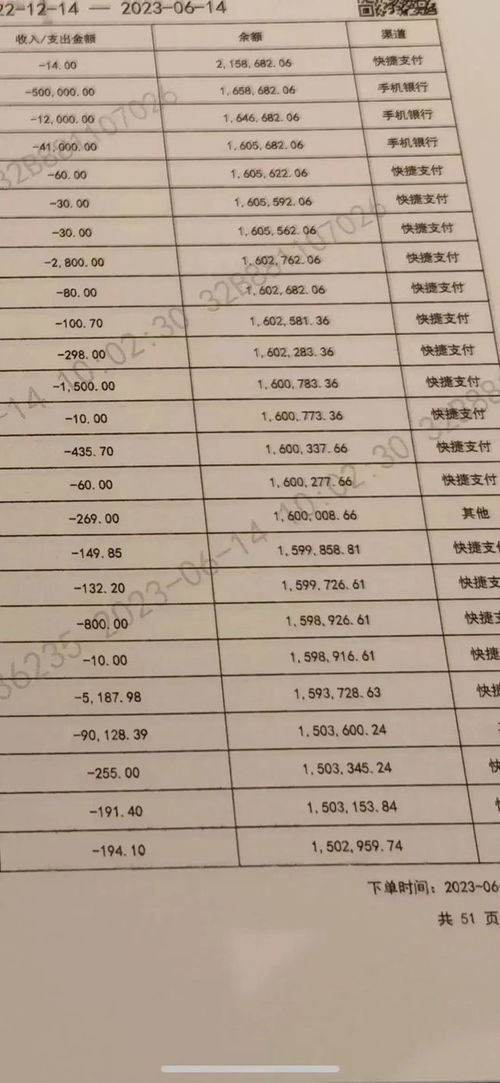 22-12-14 — 2023-06-14
收入/支出金额 余额 渠道
-14.00 2,158,682.06 快捷支付
-500,000.00 1,658,682.06 手机银行
-12,000.00 1,646,682.06 手机银行
-41,000.00 1,605,682.06 手机银行
-60.00 1,605,622.06 快捷支付
-30.00 1,605,592.06 快捷支付
-30.00 1,605,562.06 快捷支付
-2,800.00 1,602,762.06 快捷支付
-80.00 1,602,682.06 快捷支付
-100.70 1,602,581.36 快捷支付
-298.00 1,602,283.36 快捷支付
-1,500.00 1,600,783.36 快捷支付
-10.00 1,600,773.36 快捷支付
-435.70 1,600,337.66 快捷支付
-60.00 1,600,277.66 快捷支付
-269.00 1,600,008.66 其他
-149.85 1,599,858.81 快捷支付
-132.20 1,599,726.61 快捷支
-800.00 1,598,926.61 快捷支
-10.00 1,598,916.61 快捷
-5,187.98 1,593,728.63 快捷
-90,128.39 1,503,600.24
-255.00 1,503,345.24 快
-191.40 1,503,153.84
-194.10 1,502,959.74
下单时间：2023-06-
共 51 页
32B881107026
-14 10:02:30 32B881107026
36235 2023-06-14 10:02:30 32B88